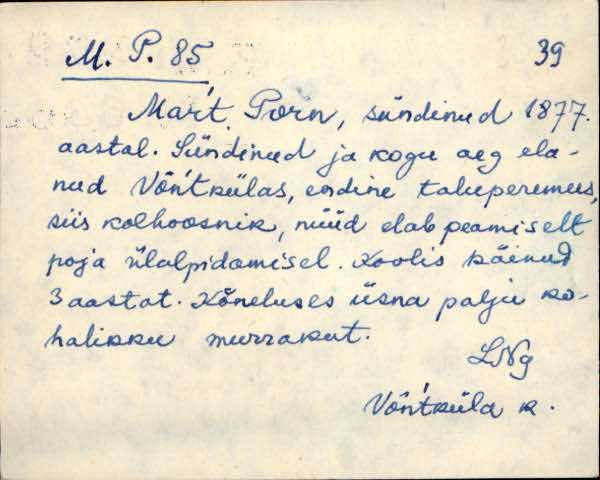 M. P. 85 39
Mar't Porn, sündinud 1877.
aastal. Sündinud ja kogu aeg ela-
nud Võn'tkülas, endine taluperemees,
siis kolhoosnik, nüüd elab peamiselt
poja ülalpidamisel. Koolis käinud
3 aastat. Kõneluses üsna palju ko-
halikku murrakut.
LNg
Võn'tküla k.